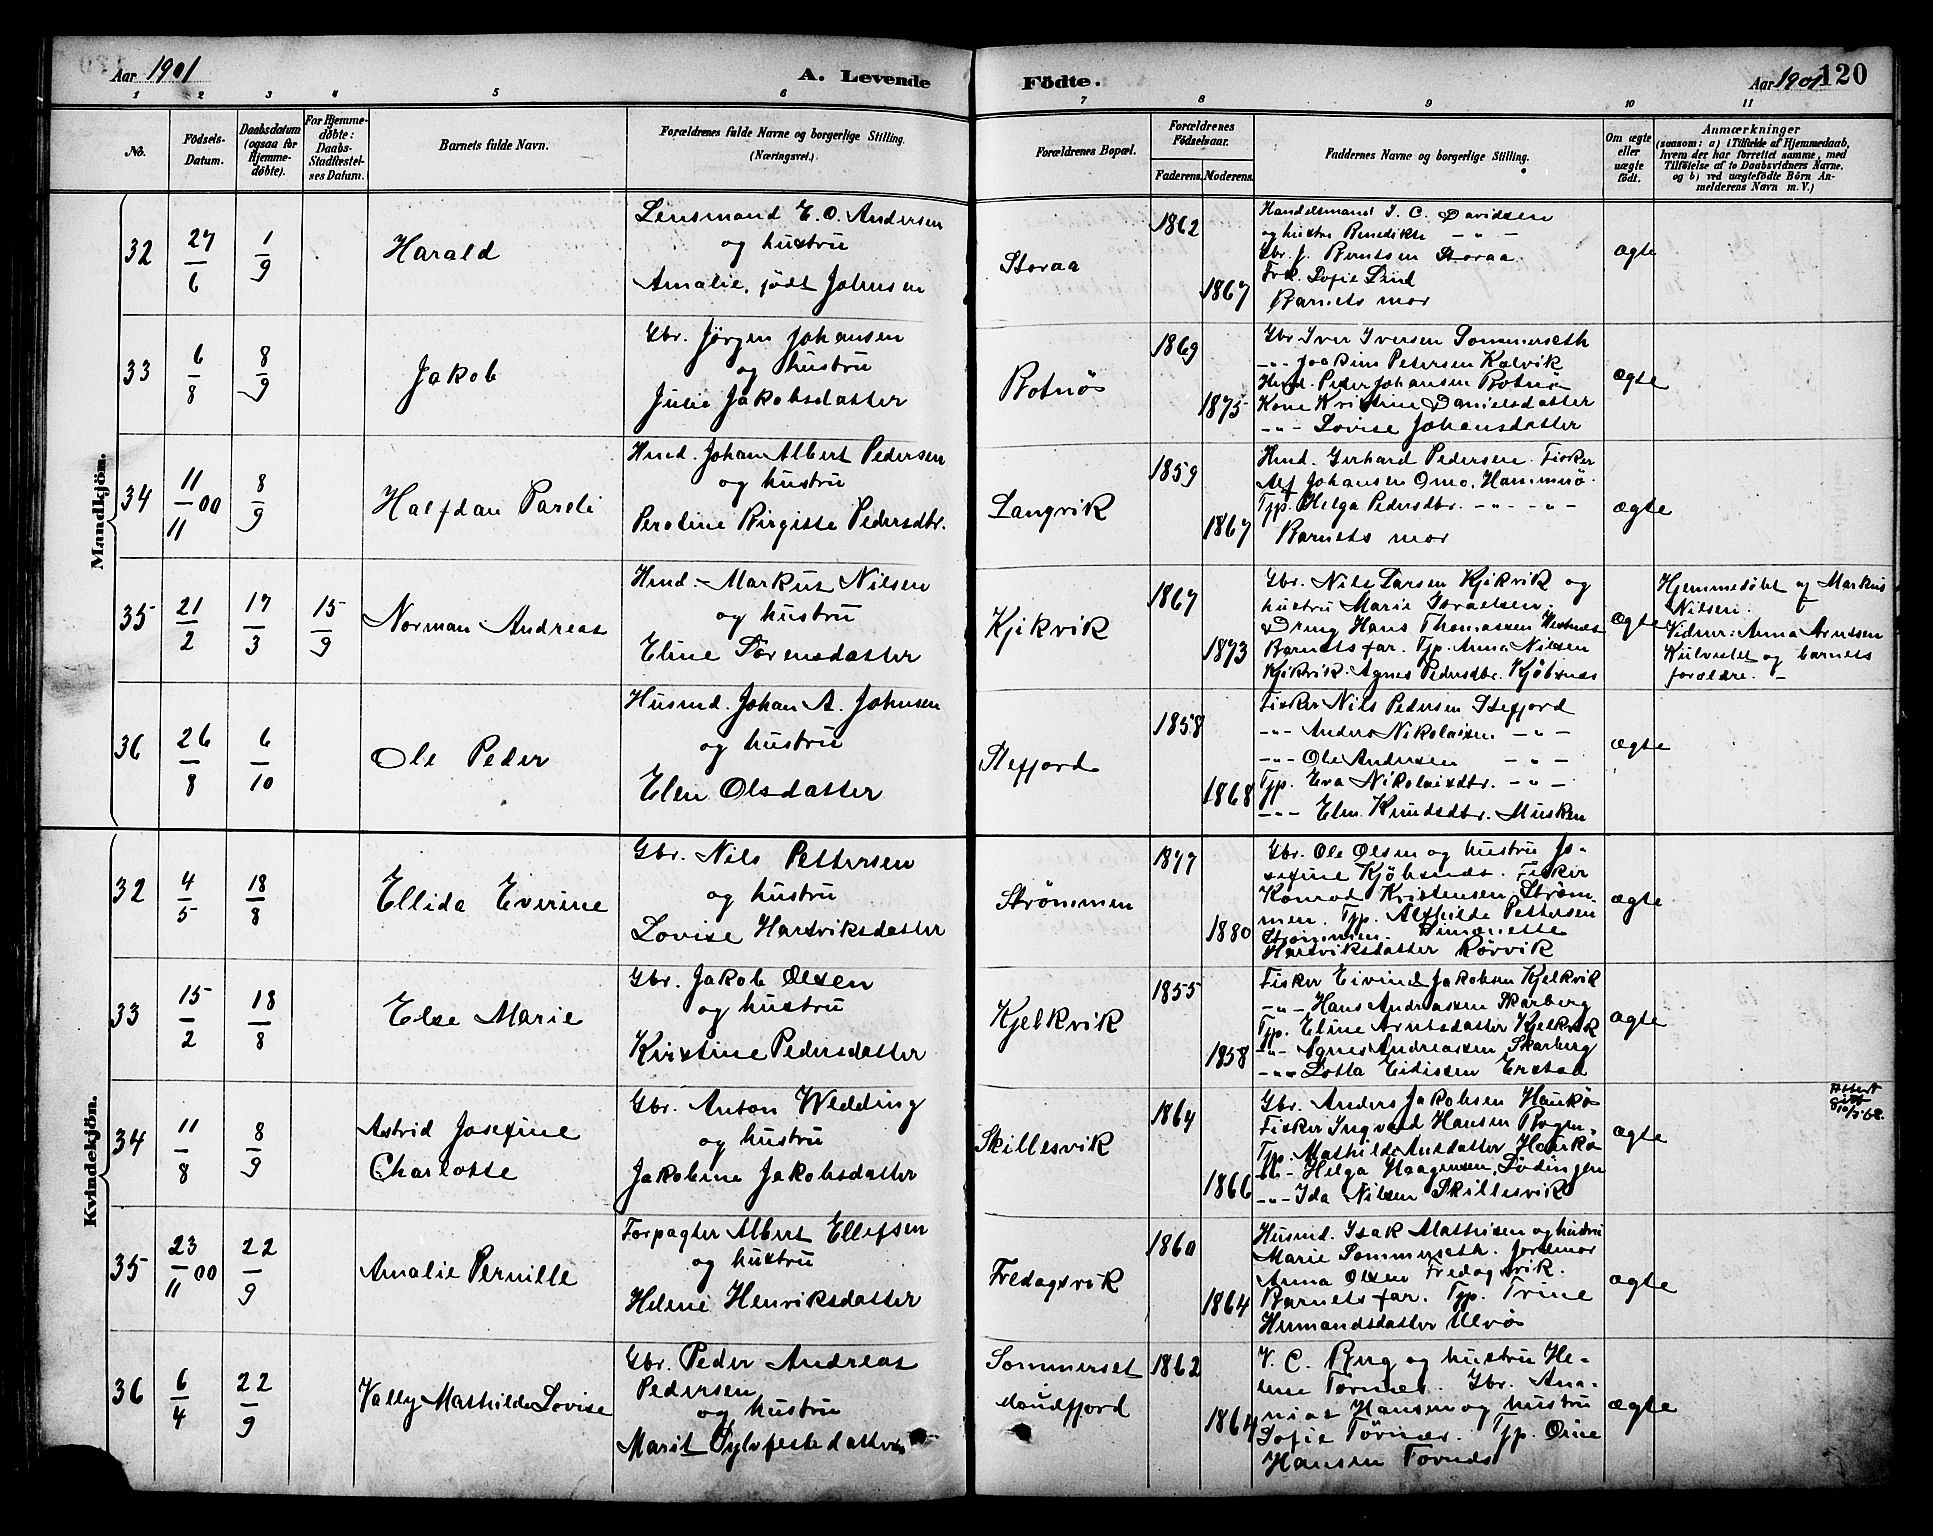 Aar 1901
A. Levende
Födte.
Aar 1901
120
1 2 3 4 5 6 7 8 9 10 11
No.
Födsels-
Datum.
Daabsdatum
(ogsaa for
Hjemme-
döbte).
For Hjemme-
döbte:
Daabs-
Stadfæstel-
ses Datum.
Barnets fulde Navn.
Forældrenes fulde Navne og borgerlige Stilling.
(Næringsvei.)
Forældrenes Bopæl.
Forældrenes
Födselsaar.
Faderens. Moderens.
Faddernes Navne og borgerlige Stilling.
Om ægte
eller
uægte
födt.
Anmærkninger
(saasom: a) i Tilfælde af Hjemmedaab,
hvem der har forrettet samme, med
Tilföielse af to Daabsvidners Navne.
og b) ved uægtefödte Börn An-
melderens Navn m. V.)
Mandkjön.
32
27/6
1/9
Harald
Lensmand E. O. Andersen
og hustru
Amalie, født Johnsen
Storaa
1862
1867
Handelsmand I. C. Davidsen
og hustru Benedikte - " -
Gbr. J. Berntsen Storaa
Frk. Sofie Lind
Barnets mor
ægte
33
6/8
8/9
Jakob
Gbr. Jörgen Johansen
og hustru
Julie Jakobsdatter
Rotnøs
1869
1875
Gbr Iver Iversen Sommerseth
-"- Joakim Petersen Kalvik
Hmd. Peder Johansen Botnø
Kone Kristine Danielsdatter
-"- Lovise Johansdatter
ægte
34
11/11 00
8/9
Halfdan Pareli
Hmd. Johan Albert Pedersen
og hustru
Peroline Birgitte Pedersdtr.
Langvik
1859
1867
Hmd. Gerhard Pedersen. Fisker
Alf Johansen Omo, Hammerø.
Tjp. Helga Pedersdtr. -"- -"-
Barnets mor
ægte
35
21/2
17/3
15/9
Norman Andreas
Hmd. Markus Nilsen
og hustru
Eline Sörensdatter
Kjikvik
1867
1873
Gbr. Nils Larsen Kjikvik og
hustru Marie Israelsen.
Dreng Hans Thomassen
Barnets far. Tjp. Anna Nilsen
Kjikvik. Agnes Pedersdtr. Kjöbsnes
ægte
Hjemmedøbt af Markus
Nilsen.
Vidner: Anna Arntsen
og barnets
forældre. -
36
26/8
6/10
Ole Peder
Husmd. Johan A. Johnsen
og hustru
Elen Olsdatter
Stefjord
1858
1868
Fisker Nils Pedersen Stefjord
-"- Anders Nikolaisen -"-
-"- Ole Andersen -"-
Tjp. Eva Nikolaisdtr. -"-
-"- Elen Knudsdtr. Musken
ægte
Kvindekjön.
32
4/5
18/8
Ellida Everine
Gbr. Nils Pettersen
og hustru
Lovise Hartviksdatter
Strömmen
1877
1880
Gbr. Ole Olsen og hustru Jo-
sefine Kjöbsnes. Fisker
Konrad Kristensen Strøm-
men. Tjp. Alfhilde Pettersen
Strömmen. Simonette
Hartviksdatter Rörvik
ægte
33
15/2
18/8
Else Marie
Gbr. Jakob Olsen
og hustru
Kirstine Pedersdatter
Kjelkvik
1855
1858
Fisker Eivind Jakobsen Kjelkvik
-"- Hans Andreassen Skarberg
Tjp. Eline Arntsdatter Kjelkvik
-"- Agnes Andreassen Skarberg
-"- Lotta Eidissen Erstad
ægte
34
11/8
8/9
Astrid Josefine
Charlotte
Gbr. Anton Wedding
og hustru
Jakobine Jakobsdatter
Skillesvik
1864
1866
Gbr. Anders Jakobsen Haukø
Fisker Ingvard Hansen Bogen.
Tjp. Mathilde Antsdatter Haukø
-"- Helga Haagensen, Lödingen
-"- Ida Nilsen Skillesvik
ægte
Attest
35
23/11 00
22/9
Amalie Pernille
Forpagter Albert Ellefsen
og hustru
Helene Henriksdatter
Fredagsvik
1860
1864
Husmd. Isak Mathisen og hustru
Marie Sommerseth. Jordmor
Anna Olsen Fredagsvik.
Barnets far. Tjp. Trine
Hermandsdatter Ulvøs
ægte
36
6/4
22/9
Vally Mathilde Lovise
Gbr. Peder Andreas
Pedersen
og hustru
Marit Sylvestedatter
Sommerset
Maudfjord
1862
1864
V. C. Berg og hustru He-
lene Tørnes. Gbr. Ana-
nias Hansen og hustru
Sofie Tørnes. Tjp. Orine
Hansen Tørnes
ægte